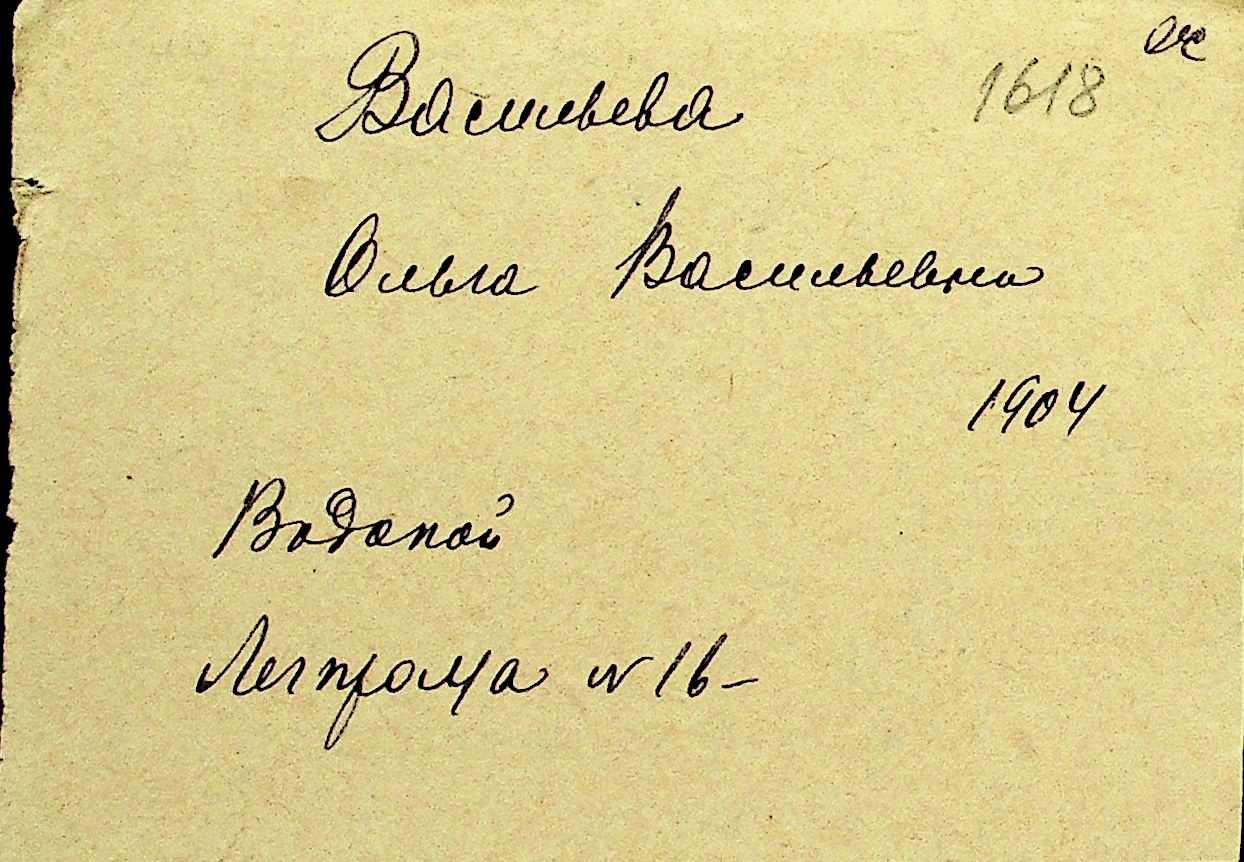 1618
Васильева
Ольга Васильевна
1904
Водопой
Легпрома № 16-